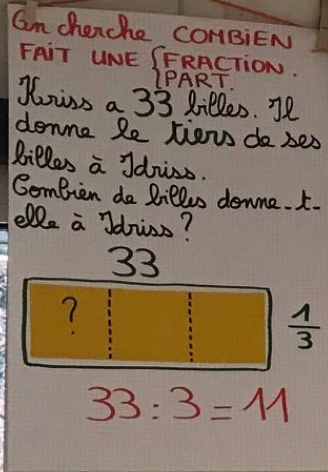 On cherche COMBIEN
FAIT UNE { FRACTION.
PART.
Kriss a 33 billes. Il
donne le tiers de ses
billes à Idriss.
Combien de billes donne-t-
elle à Idriss ?
33
?
1/3
33 : 3 = 11